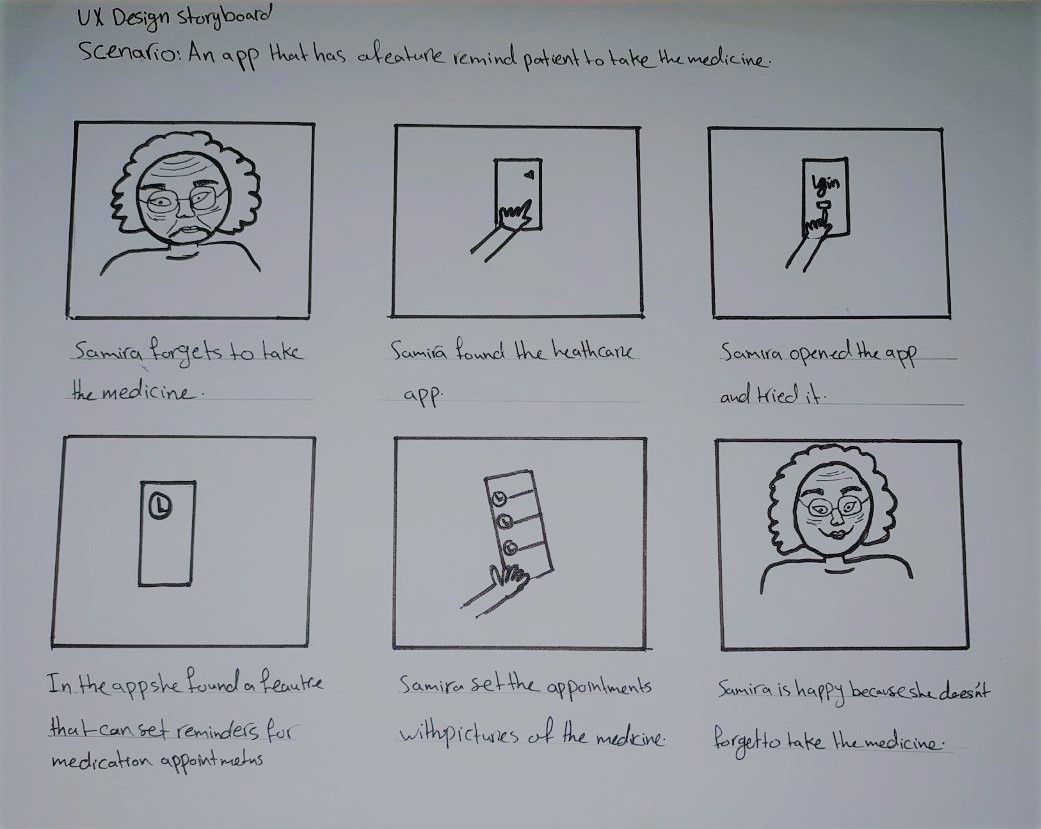 UX Design Storyboard
Scenario: An app that has a feature remind patient to take the medicine.
Login
Samira forgets to take
the medicine.
Samira found the heathcare
app.
Samira opened the app
and tried it.
In the app she found a feautre
that can set reminders for
medication appointmetns
Samira set the appointments
with pictures of the medicine.
Samira is happy because she doesn't
forget to take the medicine.